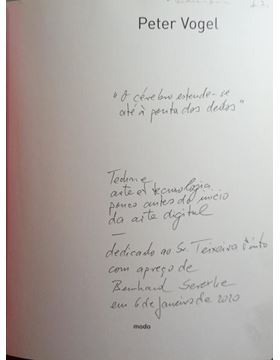 Peter Vogel
"O cérebro estende-se
até à ponta dos dedos"
arte e tecnologia
pouco antes do início
da arte digital
—
dedicado ao Sr. Teixeira Pinto
com apreço de
Bernhard Serexhe
em 6 de janeiro de 2020
modo